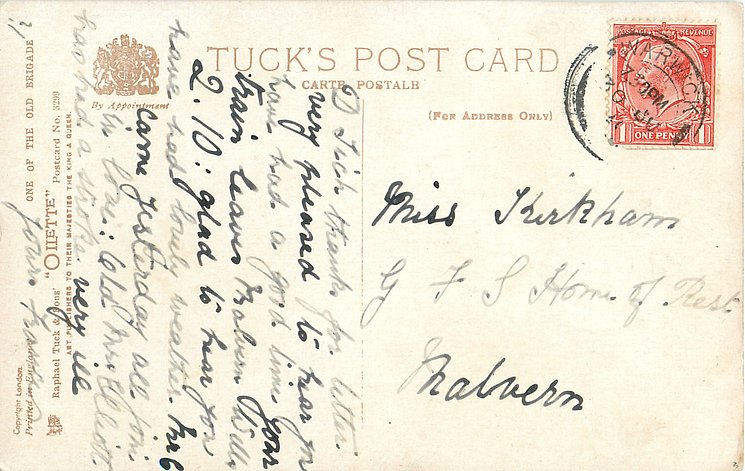 TUCK'S POST CARD
CARTE POSTALE
(FOR ADDRESS ONLY)
By Appointment
POSTAGE REVENUE
ONE PENNY
1 1
WARWICK
7.30 PM
Miss Kirkham
G F S Home of Rest
Malvern
thanks for letter.
very pleased to hear you
have had a good time your
train leaves Malvern Wells
2.10: glad to hear you
have had lovely weather. Mrs
came yesterday all for
love: Old Mrs Elliott
has had a stroke very ill
yours
?
ONE OF THE OLD BRIGADE
Raphael Tuck & Sons' "OILETTE" Postcard No. 3299
ART PUBLISHERS TO THEIR MAJESTIES THE KING & QUEEN.
Copyright London.
Printed in England